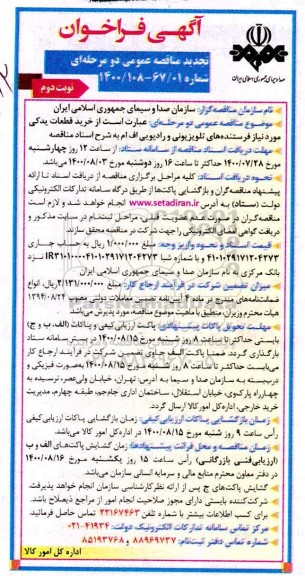 آگهی فراخوان
تجدید مناقصه عمومی دو مرحله‌ای
شماره ۱۴۰۰/۱۰۸-۶۷/۰۱
نوبت دوم
صدا و سیمای جمهوری اسلامی ایران
نام سازمان مناقصه‌گزار: سازمان صدا و سیمای جمهوری اسلامی ایران
موضوع مناقصه عمومی دو مرحله‌ای: عبارت است از خرید قطعات یدکی
مورد نیاز فرستنده‌های تلویزیونی و رادیویی اف ام به شرح اسناد مناقصه
مهلت دریافت اسناد مناقصه از سامانه ستاد: از ساعت ۱۲ روز چهارشنبه
مورخ ۱۴۰۰/۰۷/۲۸ حداکثر تا ساعت ۱۶ روز دوشنبه مورخ ۱۴۰۰/۰۸/۰۳ می‌باشد.
نحوه دریافت اسناد: کلیه مراحل برگزاری مناقصه از دریافت اسناد تا ارائه
پیشنهاد مناقصه‌گران و بازگشایی پاکت‌ها از طریق درگاه سامانه تدارکات الکترونیکی
دولت (ستاد) به آدرس www.setadiran.ir انجام خواهد شد و لازم است
مناقصه‌گران در صورت عدم عضویت قبلی، مراحل ثبت‌نام در سایت مذکور و
دریافت گواهی امضای الکترونیکی را جهت شرکت در مناقصه محقق سازند.
قیمت اسناد و نحوه واریز وجه: مبلغ ۱/۰۰۰/۰۰۰ ریال به حساب جاری
بانک مرکزی به نام سازمان صدا و سیمای جمهوری اسلامی ایران
میزان تضمین شرکت در فرآیند ارجاع کار: مبلغ ۲/۱۳۱/۰۰۰/۰۰۰ ریال، انواع
ضمانتنامه‌های مندرج در ماده ۴ آیین‌نامه تضمین معاملات دولتی مصوب ۱۳۹۴/۰۸/۲۴
هیات محترم وزیران، منطبق با ماهیت موضوع مناقصه، مورد پذیرش می‌باشد
مهلت تحویل پاکات پیشنهادی: پاکت ارزیابی کیفی و پاکات (الف، ب و ج)
بایستی حداکثر تا ساعت ۸ روز شنبه مورخ ۱۴۰۰/۰۸/۱۵ در بستر سامانه ستاد
بارگذاری گردد. ضمنا پاکت الف حاوی تضمین شرکت در فرآیند ارجاع کار
می‌بایست حداکثر تا ساعت ۸ روز شنبه مورخ ۱۴۰۰/۰۸/۱۵ به‌صورت فیزیکی و
دربسته به سازمان صدا و سیما به آدرس: تهران، خیابان ولی‌عصر، نرسیده به
چهارراه پارک‌وی، خیابان استقلال، ساختمان اداری جام‌جم، طبقه چهارم، مدیریت
خرید خارجی، اداره کل امور کالا ارسال گردد.
زمان بازگشایی پاکات ارزیابی کیفی: زمان بازگشایی پاکات ارزیابی کیفی
رأس ساعت ۹ روز شنبه مورخ ۱۴۰۰/۰۸/۱۵ در اداره کل امور کالا می‌باشد.
زمان مناقصه و محل قرائت پیشنهادها: زمان گشایش پاکت‌های الف و ب
(ارزیابی فنی بازرگانی) رأس ساعت ۱۵ روز یکشنبه مورخ ۱۴۰۰/۰۸/۱۶
در دفتر معاون محترم منابع مالی و سرمایه انسانی سازمان می‌باشد.
گشایش پاکت‌های ج پس از ارائه نظر کارشناسی سازمان انجام خواهد پذیرفت.
شرکت‌کننده بایستی دارای مجوز صلاحیت انجام امور از مراجع ذیصلاح باشد.
برای کسب اطلاعات بیشتر با شماره تلفن ۲۲۱۶۷۴۶۳ تماس حاصل فرمائید.
مرکز تماس سامانه تدارکات الکترونیک دولت: ۴۱۹۳۴-۰۲۱
شماره تماس دفتر ثبت‌نام: ۸۸۹۶۹۷۳۷ و ۸۵۱۹۳۷۶۸
اداره کل امور کالا